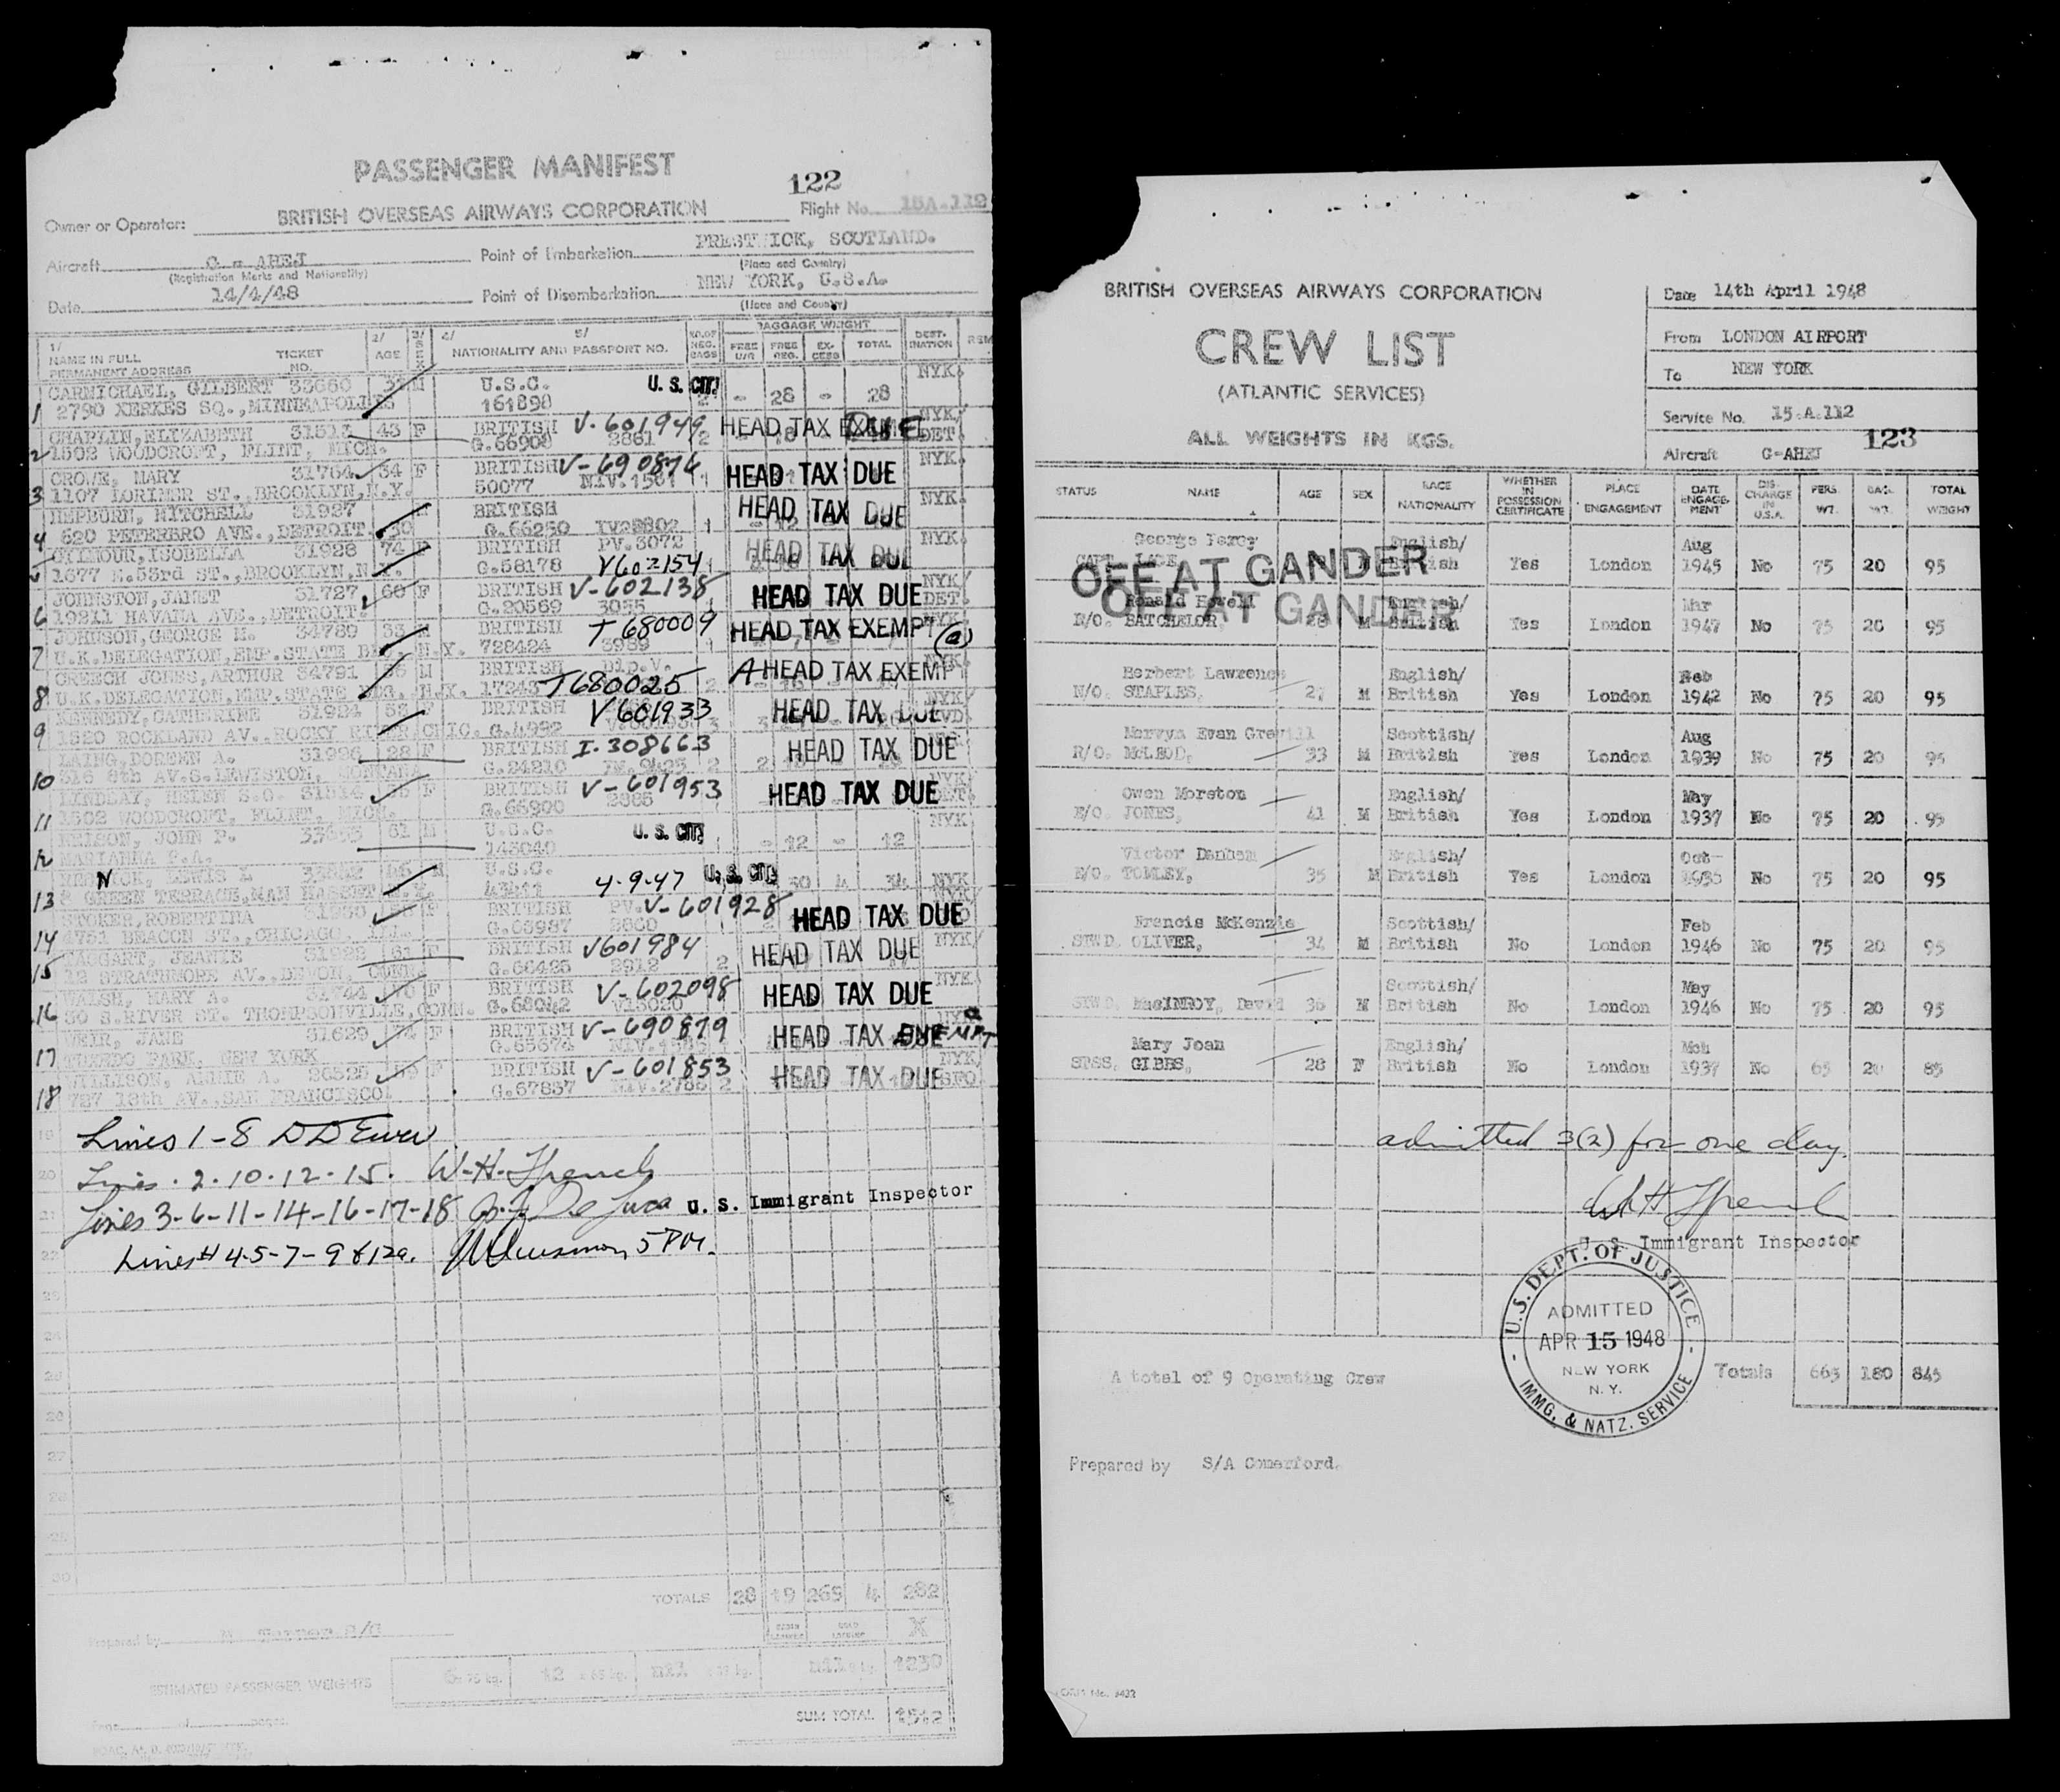 PASSENGER MANIFEST
122
Owner or Operator: BRITISH OVERSEAS AIRWAYS CORPORATION Flight No. 15A.112
Aircraft G - AHEJ Point of Embarkation PRESTWICK, SCOTLAND.
(Registration Marks and Nationality) (Place and Country)
Date 14/4/48 Point of Disembarkation NEW YORK, U.S.A.
(Place and Country)
1/ NAME IN FULL PERMANENT ADDRESS TICKET NO. 2/ AGE 3/ SEX 4/ NATIONALITY AND 5/ PASSPORT NO. NO.OF REG. BAGS BAGGAGE WEIGHT FREE U/R FREE REG. EXCESS TOTAL DESTINATION REM
CARMICHAEL, GILBERT 33660 M U.S.C. U. S. CIT. NYK.
1 2790 XERXES SQ., MINNEAPOLIS 161898 2 - 28 - 28
CHAPLIN, ELIZABETH 31513 43 F BRITISH V-601949 HEAD TAX DUE NYK/
2 1502 WOODCROFT, FLINT, MICH. G.66908 2881 2 DET.
CROWE, MARY 31764 34 F BRITISH V-690876 HEAD TAX DUE NYK.
3 1107 LORIMER ST., BROOKLYN, N.Y. 50077 NIV.1581 1
HEPBURN, MITCHELL 31927 M BRITISH HEAD TAX DUE NYK.
4 620 PETERBRO AVE., DETROIT. 30 G.66250 IV28802 1
GILMOUR, ISOBELLA 31928 74 F BRITISH PV.3072 HEAD TAX DUE NYK.
5 1677 E.53rd ST., BROOKLYN, N.Y. G.58178 V602154 1
JOHNSTON, JANET 31727 60 F BRITISH V-602138 HEAD TAX DUE NYK/
6 19211 HAVANA AVE., DETROIT. G.20569 3055 1 DET.
JOHNSON, GEORGE M. 34789 33 M BRITISH T 680009 HEAD TAX EXEMPT (a) NYK.
7 U.K.DELEGATION, EMP.STATE N.Y. 728424 5989
CREECH JONES, ARTHUR 34791 M BRITISH Dip.V. HEAD TAX EXEMPT
8 U.K.DELEGATION, EMP.STATE N.Y. T680025 2
KENNEDY, CATHERINE 31924 52 F BRITISH V601933 HEAD TAX DUE NYK/
9 1520 ROCKLAND AV., ROCKY RIVER G.4992 3
LAING, DOREEN A. 31996 28 F BRITISH I-308663 HEAD TAX DUE
10 316 8th AV.S.LEWISTON, MONTANA G.24210 2
LINDSAY, HELEN S.C. 31514 F BRITISH V-601953 HEAD TAX DUE NYK/
11 1502 WOODCROFT, FLINT, MICH. G.66900 2885 DET.
NEISON, JOHN P. 33653 61 M U.S.C. U. S. CIT. NYK.
12 MARIANNA P.A. 143040 - 12 - 12
LEWIS U.S.C. U. S. CIT.
13 GREEN TERRACE, MAN HASSET 43411 4-9-47 30 4 34 NYK
STOKER, ROBERTINA 31930 F BRITISH V-601928 HEAD TAX DUE
14 4751 BEACON ST., CHICAGO, ILL. G.65987 2860
TAGGART, JEANIE 31922 61 F BRITISH V601984 HEAD TAX DUE NYK/
15 12 STRATHMORE AV., DEVON, CONN. G.66425 2912 2
WALSH, MARY A. 31744 F BRITISH V-602098 HEAD TAX DUE NYK.
16 30 S.RIVER ST. THOMPSONVILLE, CONN. G.68042
WEIR, JANE 31629 F BRITISH V-690879 HEAD TAX EXEMPT
17 TUXEDO PARK, NEW YORK G.65674
WILLISON, ANNIE A. 26525 F BRITISH V-601853 HEAD TAX DUE NYK/
18 727 18th AV., SAN FRANCISCO. G.67857 NIV.2786 2 SFO.
Lines 1-8
Lines 2-10-12-15. W-H-French
Lines 3-6-11-14-16-17-18 De Luca U. S. Immigrant Inspector
Lines # 4-5-7-9 & 12a. 5 PM.
TOTALS 28 19 265 4 282
X
Prepared by
ESTIMATED PASSENGER WEIGHTS 6 75 kg. 12 65 kg. nil nil 1230
SUM TOTAL 1512
Page of pages
BRITISH OVERSEAS AIRWAYS CORPORATION
CREW LIST
(ATLANTIC SERVICES)
ALL WEIGHTS IN KGS.
Date 14th April 1948
From LONDON AIRPORT
To NEW YORK
Service No. 15.A.112
123
Aircraft G-AHEJ
STATUS NAME AGE SEX RACE NATIONALITY WHETHER IN POSSESSION CERTIFICATE PLACE ENGAGEMENT DATE ENGAGEMENT DISCHARGE IN U.S.A. PERS. WT. BAG. WT. TOTAL WEIGHT
George Percy English/ Aug
CAPT. British Yes London 1945 No 75 20 95
OFF AT GANDER
Ronald Howell English/ Mar
N/O. BATCHELOR M British Yes London 1947 No 75 20 95
OFF AT GANDER
Herbert Lawrence English/ Feb
N/O. STAPLES, 27 M British Yes London 1942 No 75 20 95
Mervyn Evan Grevill Scottish/ Aug
R/O. McLEOD, 33 M British Yes London 1939 No 75 20 95
Owen Moreton English/ May
E/O. JONES, 41 M British Yes London 1937 No 75 20 95
Victor Danham English/ Oct
E/O. TOMLEY, 35 M British Yes London 1935 No 75 20 95
Francis McKenzie Scottish/ Feb
STWD. OLIVER, 34 M British No London 1946 No 75 20 95
Scottish/ May
STWD. MacINROY, David 36 M British No London 1946 No 75 20 95
Mary Joan English/ Mch
STSS. GIBBS, 28 F British No London 1937 No 65 20 85
admitted 3(2) for one day.
W H French
U. S. Immigrant Inspector
U.S. DEPT. OF JUSTICE
ADMITTED
APR 15 1948
NEW YORK
N. Y.
IMMG. & NATZ. SERVICE
A total of 9 Operating Crew Totals 665 180 845
Prepared by S/A Comerford.